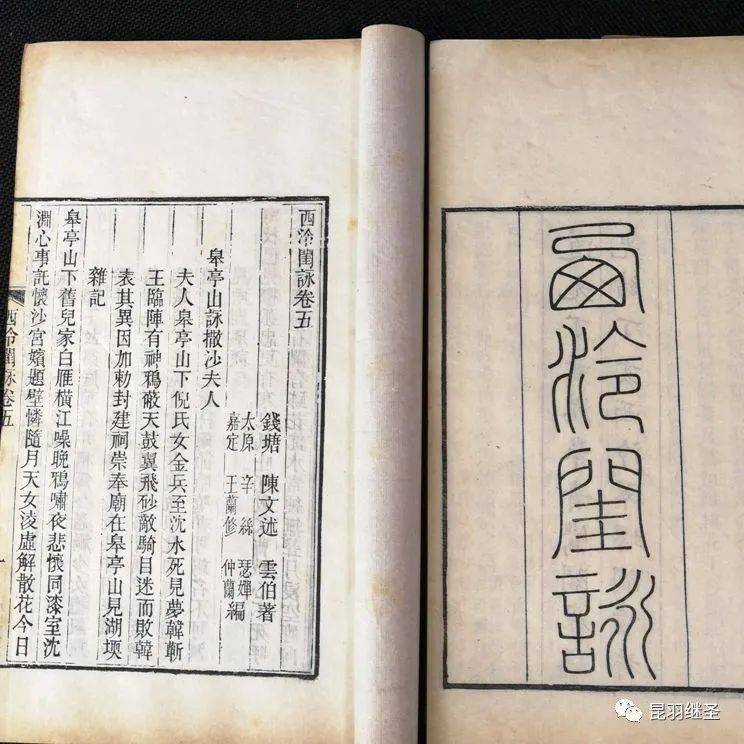 西泠閨詠
西泠閨詠卷五
錢塘 陳文述 雲伯著
太原 辛絲 瑟嬋
嘉定 王蘭修 仲蘭 編
皋亭山詠撒沙夫人
夫人皋亭山下倪氏女金兵至沈水死見夢韓蘄
王臨陣有神鴉蔽天鼓翼飛砂敵騎目迷而敗韓
表其異因加勅封建祠崇奉廟在皋亭山見湖壖
雜記
皋亭山下舊兒家白雁橫江噪晚鴉嘯夜悲懷同漆室沈
淵心事託懷沙宮嬪題壁憐隨月天女淩虛解散花今日
西泠閨詠卷五
一
昆羽继圣